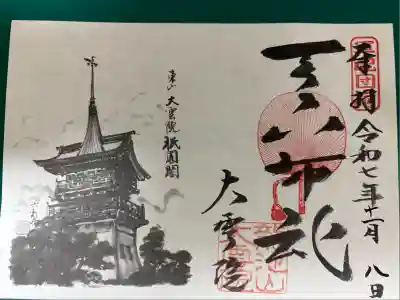 奉拝
令和七年十一月八日
天下布武
大雲院
東山 大雲院 祇園閣